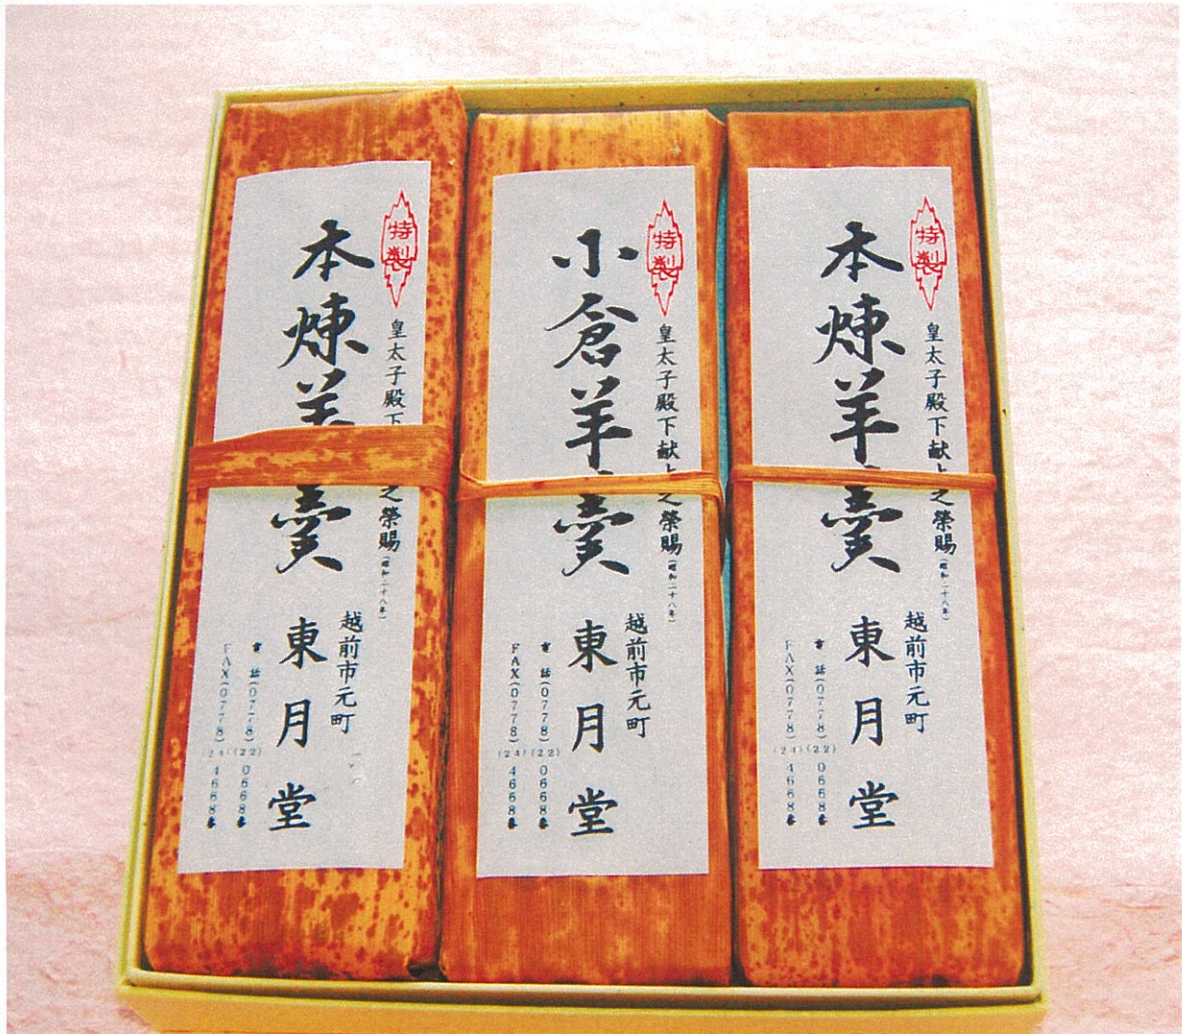 特製
皇太子殿下献上之榮賜(昭和二十八年)
本煉羊羹
越前市元町
東月堂
電話(0778)(22)0668番
FAX(0778)(24)4668番
特製
皇太子殿下献上之榮賜(昭和二十八年)
小倉羊羹
越前市元町
東月堂
電話(0778)(22)0668番
FAX(0778)(24)4668番
特製
皇太子殿下之榮賜(昭和二十八年)
本煉羊羹
越前市元町
東月堂
電話(0778)(22)0668番
FAX(0778)(24)4668番